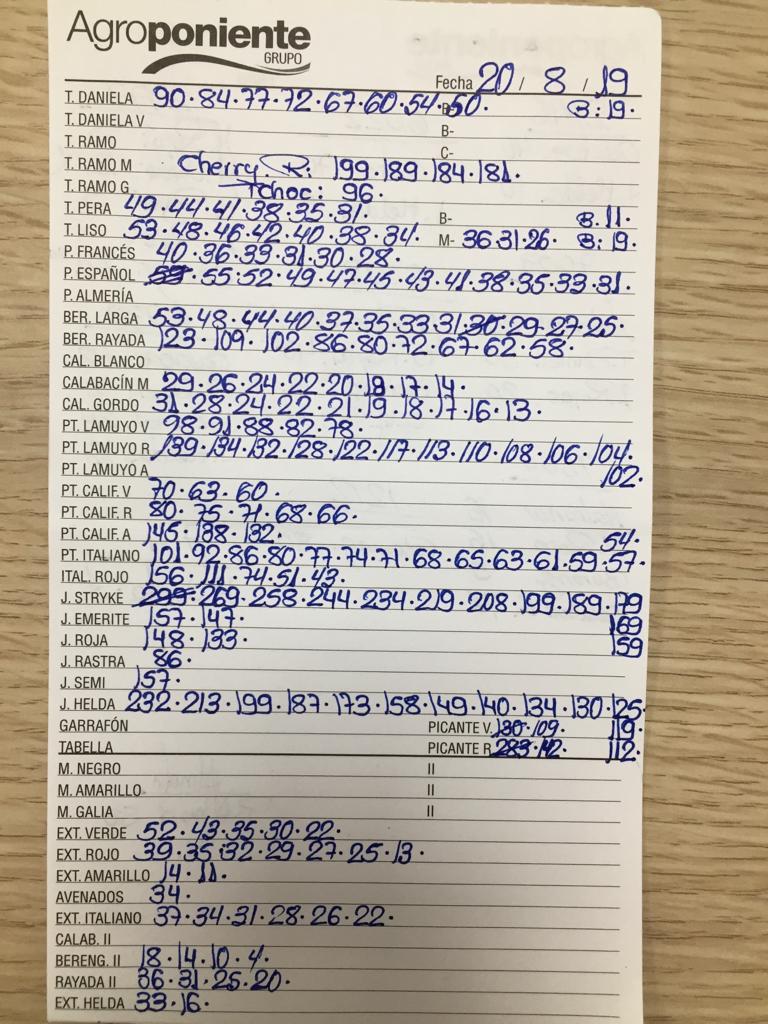 Agroponiente
GRUPO
Fecha 20 / 8 / 19
T. DANIELA 90·84·77·72·67·60·54·50· B- B:19·
T. DANIELA V B-
T. RAMO C-
T. RAMO M Cherry R: 199·189·184·181·
T. RAMO G Tchoc: 96·
T. PERA 49·44·41·38·35·31· B- B.11·
T. LISO 53·48·46·42·40·38·34· M- 36·31·26· B:19·
P. FRANCÉS 40·36·33·31·30·28·
P. ESPAÑOL 55·52·49·47·45·43·41·38·35·33·31·
P. ALMERÍA
BER. LARGA 53·48·44·40·37·35·33·31·30·29·27·25·
BER. RAYADA 123·109·102·86·80·72·67·62·58·
CAL. BLANCO
CALABACÍN M 29·26·24·22·20·19·17·14·
CAL. GORDO 31·28·24·22·21·19·18·17·16·13·
PT. LAMUYO V 98·91·88·82·78·
PT. LAMUYO R 139·134·132·128·122·117·113·110·108·106·104·
PT. LAMUYO A 102·
PT. CALIF. V 70·63·60·
PT. CALIF. R 80·75·71·68·66·
PT. CALIF. A 145·138·132· 54·
PT. ITALIANO 101·92·86·80·77·74·71·68·65·63·61·59·57·
ITAL. ROJO 156·111·74·51·43·
J. STRYKE 299·269·258·244·234·219·208·199·189·179
J. EMERITE 157·147· 169
J. ROJA 148·133· 159
J. RASTRA 86·
J. SEMI 157·
J. HELDA 232·213·199·187·173·158·149·140·134·130·125·
GARRAFÓN PICANTE V. 130·109· 119·
TABELLA PICANTE R 283·142· 112·
M. NEGRO II
M. AMARILLO II
M. GALIA II
EXT. VERDE 52·43·35·30·22·
EXT. ROJO 39·35·32·29·27·25·13·
EXT. AMARILLO 14·11·
AVENADOS 34·
EXT. ITALIANO 37·34·31·28·26·22·
CALAB. II
BERENG. II 18·14·10·4·
RAYADA II 36·31·25·20·
EXT. HELDA 33·16·